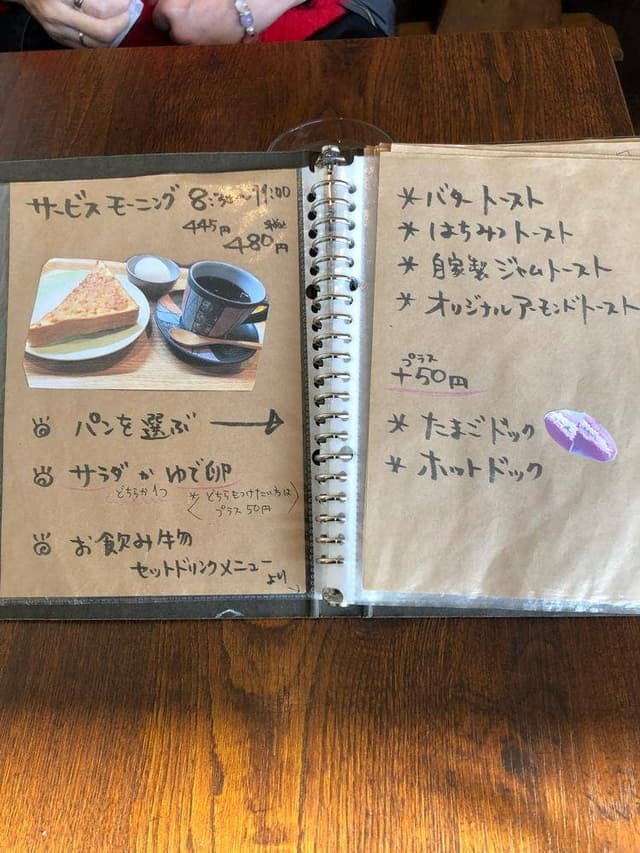 サービスモーニング 8:30〜11:00
445円
480円
パンを選ぶ →
サラダか ゆで卵
どちらか1つ
※どちらもつけたい方は
プラス50円
お飲み物
セットドリンクメニュー
より
＊バタートースト
＊はちみつトースト
＊自家製ジャムトースト
＊オリジナルアーモンドトースト
プラス
+50円
＊たまごドック
＊ホットドック